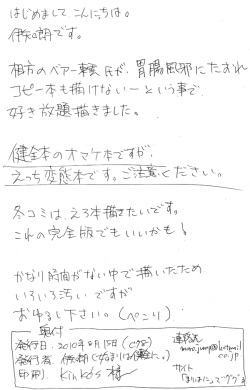 はじめまして こんにちは。
です。
相方のベアー氏が、胃腸風邪にたおれ
コピー本も描けないーという事で
好き放題描きました。
健全本のオマケ本ですが
えっち変態本です。ご注意ください。
冬コミは、えろ本描きたいです。
これの完全版でもいいかも!
かなり時間がない中で描いたため
いろいろ汚いですが
おゆるし下さい。(ぺこり)
奥付
発行日:2010年8月15日 (C78)
発行者:
印刷: Kinko's 様〜
連絡先
サイト